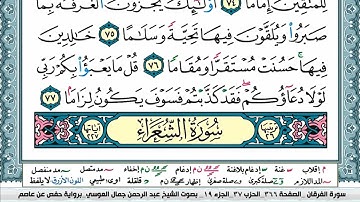 لِلْمُتَّقِينَ إِمَامًا ٧٤ أُو۟لَٰٓئِكَ يُجْزَوْنَ ٱلْغُرْفَةَ بِمَا
صَبَرُوا۟ وَيُلَقَّوْنَ فِيهَا تَحِيَّةً وَسَلَٰمًا ٧٥ خَٰلِدِينَ
فِيهَا حَسُنَتْ مُسْتَقَرًّا وَمُقَامًا ٧٦ قُلْ مَا يَعْبَؤُا۟ بِكُمْ رَبِّى
لَوْلَا دُعَآؤُكُمْ فَقَدْ كَذَّبْتُمْ فَسَوْفَ يَكُونُ لِزَامًا ٧٧
سُورَةُ الشُّعَرَاءِ
سورة الفرقان _ الصفحة ٣٦٦ _ الحزب ٣٧ _ الجزء ١٩ _ بصوت الشيخ عبد الرحمن جمال العوسي _ برواية حفص عن عاصم